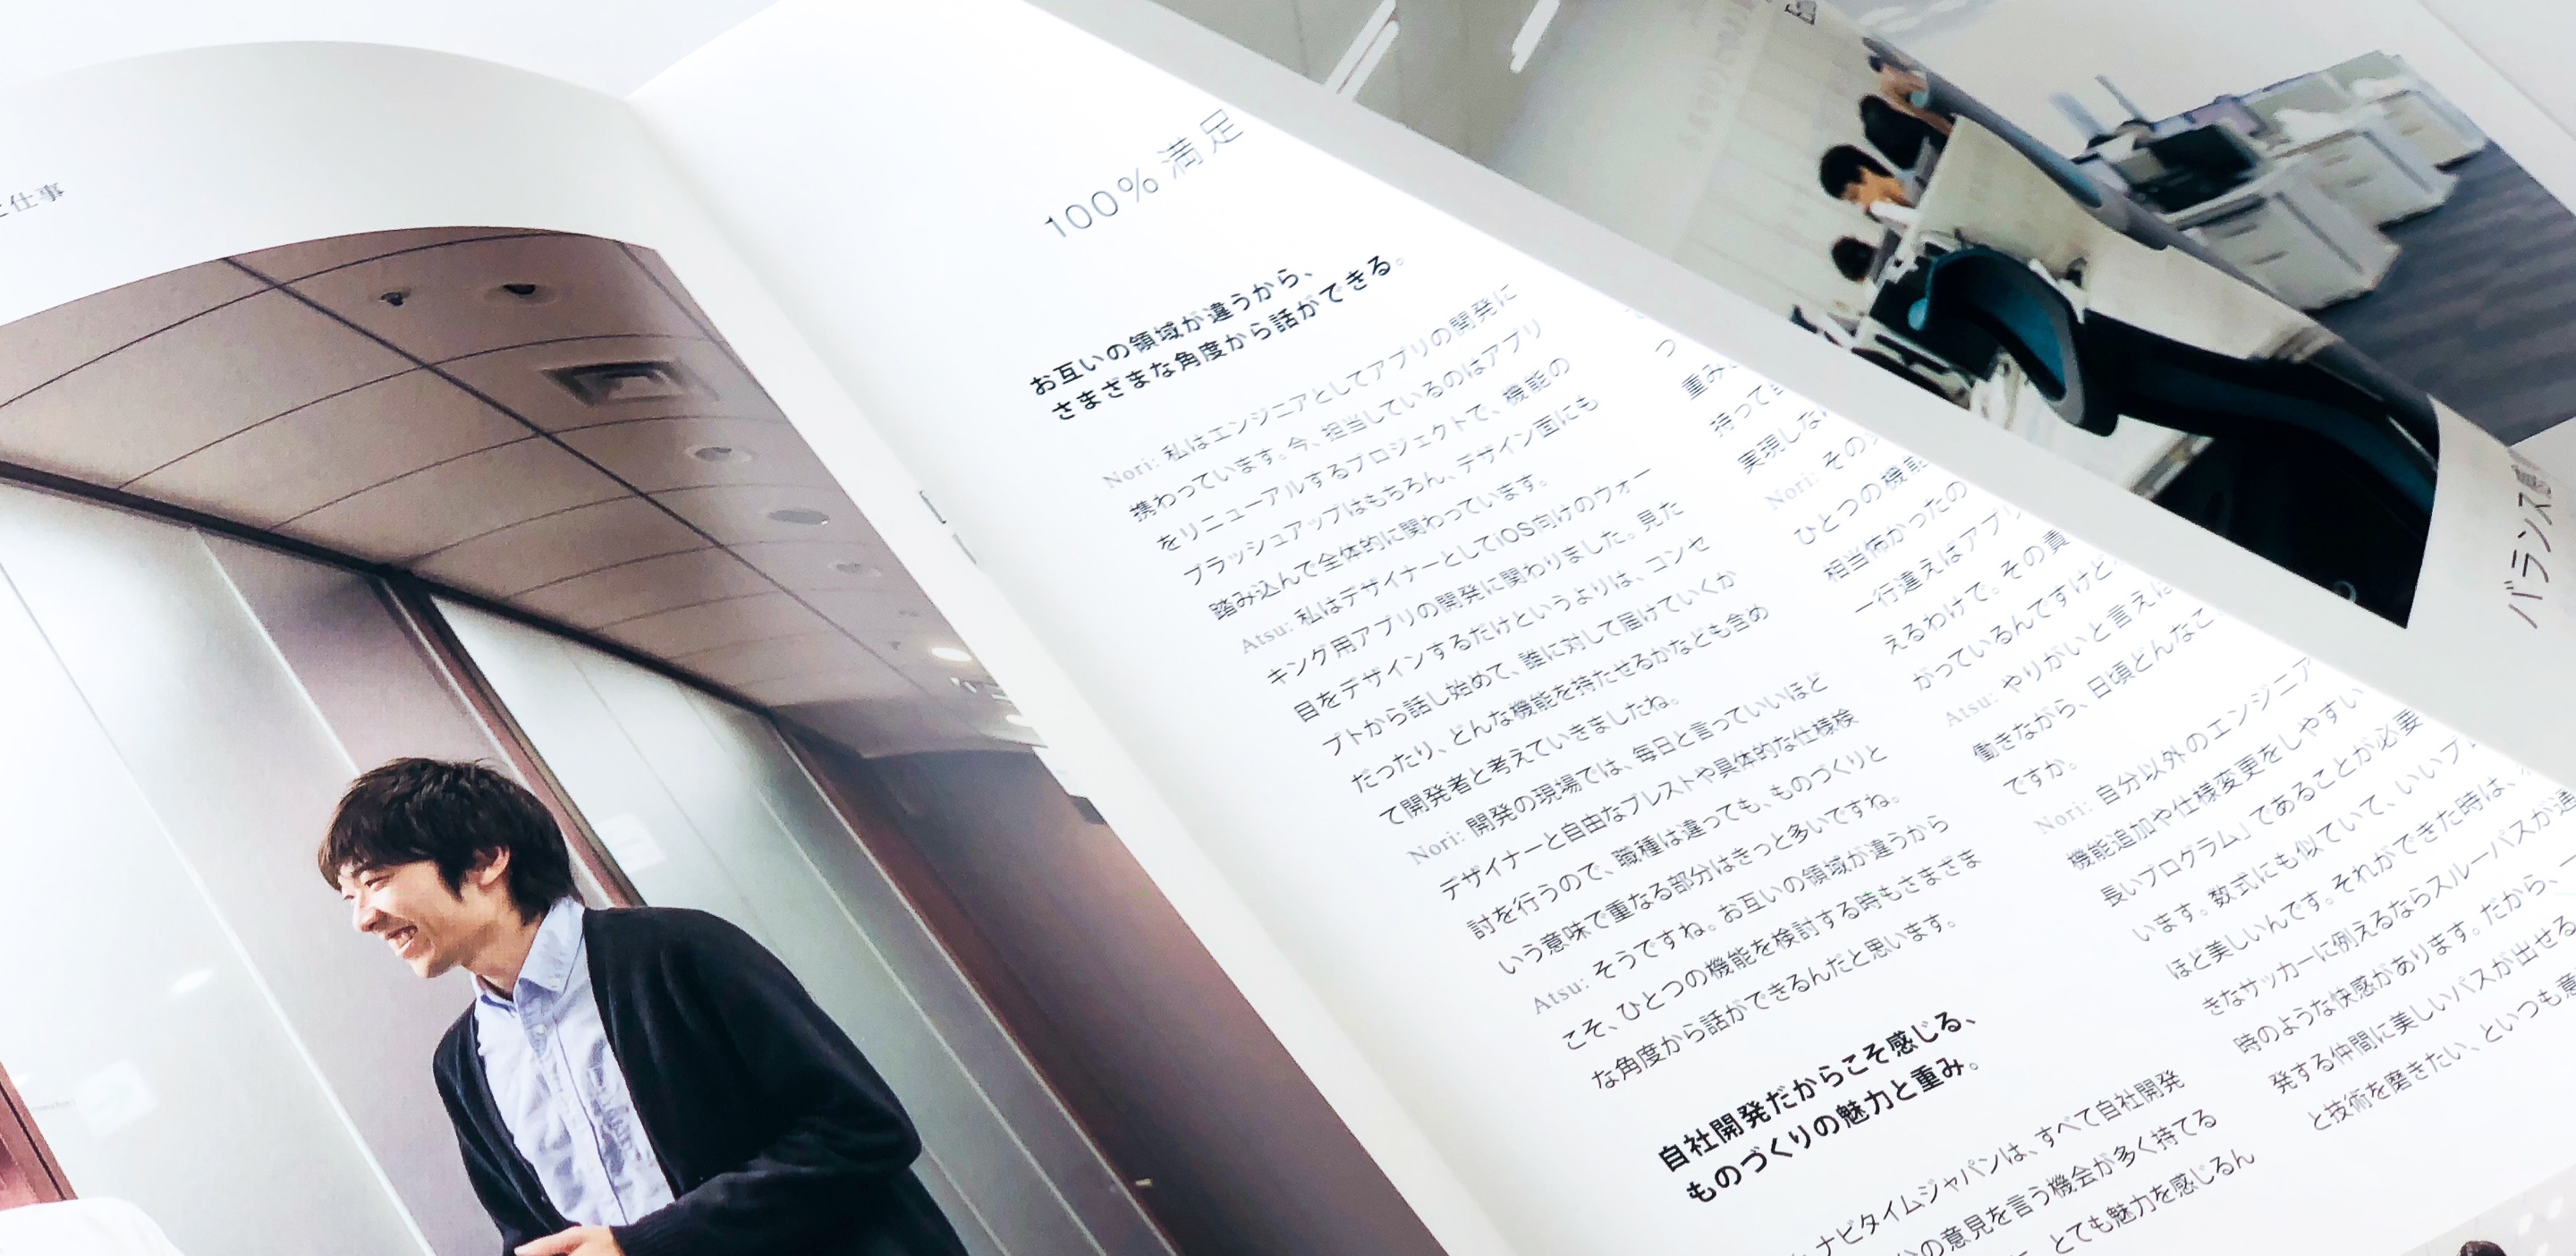 仕事
100%満足
お互いの領域が違うから、
さまざまな角度から話ができる。
Nori: 私はエンジニアとしてアプリの開発に
携わっています。今、担当しているのはアプリ
をリニューアルするプロジェクトで、機能の
ブラッシュアップはもちろん、デザイン面にも
踏み込んで全体的に関わっています。
Atsu: 私はデザイナーとしてiOS向けのウォー
キング用アプリの開発に関わりました。見た
目をデザインするだけというよりは、コンセ
プトから話し始めて、誰に対して届けていくか
だったり、どんな機能を持たせるかなども含め
て開発者と考えていきましたね。
Nori: 開発の現場では、毎日と言っていいほど
デザイナーと自由なブレストや具体的な仕様検
討を行うので、職種は違っても、ものづくりと
いう意味で重なる部分はきっと多いですね。
Atsu: そうですね。お互いの領域が違うから
こそ、ひとつの機能を検討する時もさまざま
な角度から話ができるんだと思います。
自社開発だからこそ感じる、
ものづくりの魅力と重み。
ナビタイムジャパンは、すべて自社開発
の意見を言う機会が多く持てる
とても魅力を感じるん
つ
重み
持って
実現しな
Nori: その
ひとつの機能
相当怖かったの
一行違えばアプリ
えるわけで。その責
がっているんですけど
Atsu: やりがいと言えば
働きながら、日頃どんなこ
ですか。
Nori: 自分以外のエンジニア
機能追加や仕様変更をしやすい
長いプログラム」であることが必要
います。数式にも似ていて、いいプ
ほど美しいんです。それができた時は、
きなサッカーに例えるならスルーパスが通
時のような快感があります。だから、一
発する仲間に美しいパスが出せる
と技術を磨きたい、といつも意
バランス感